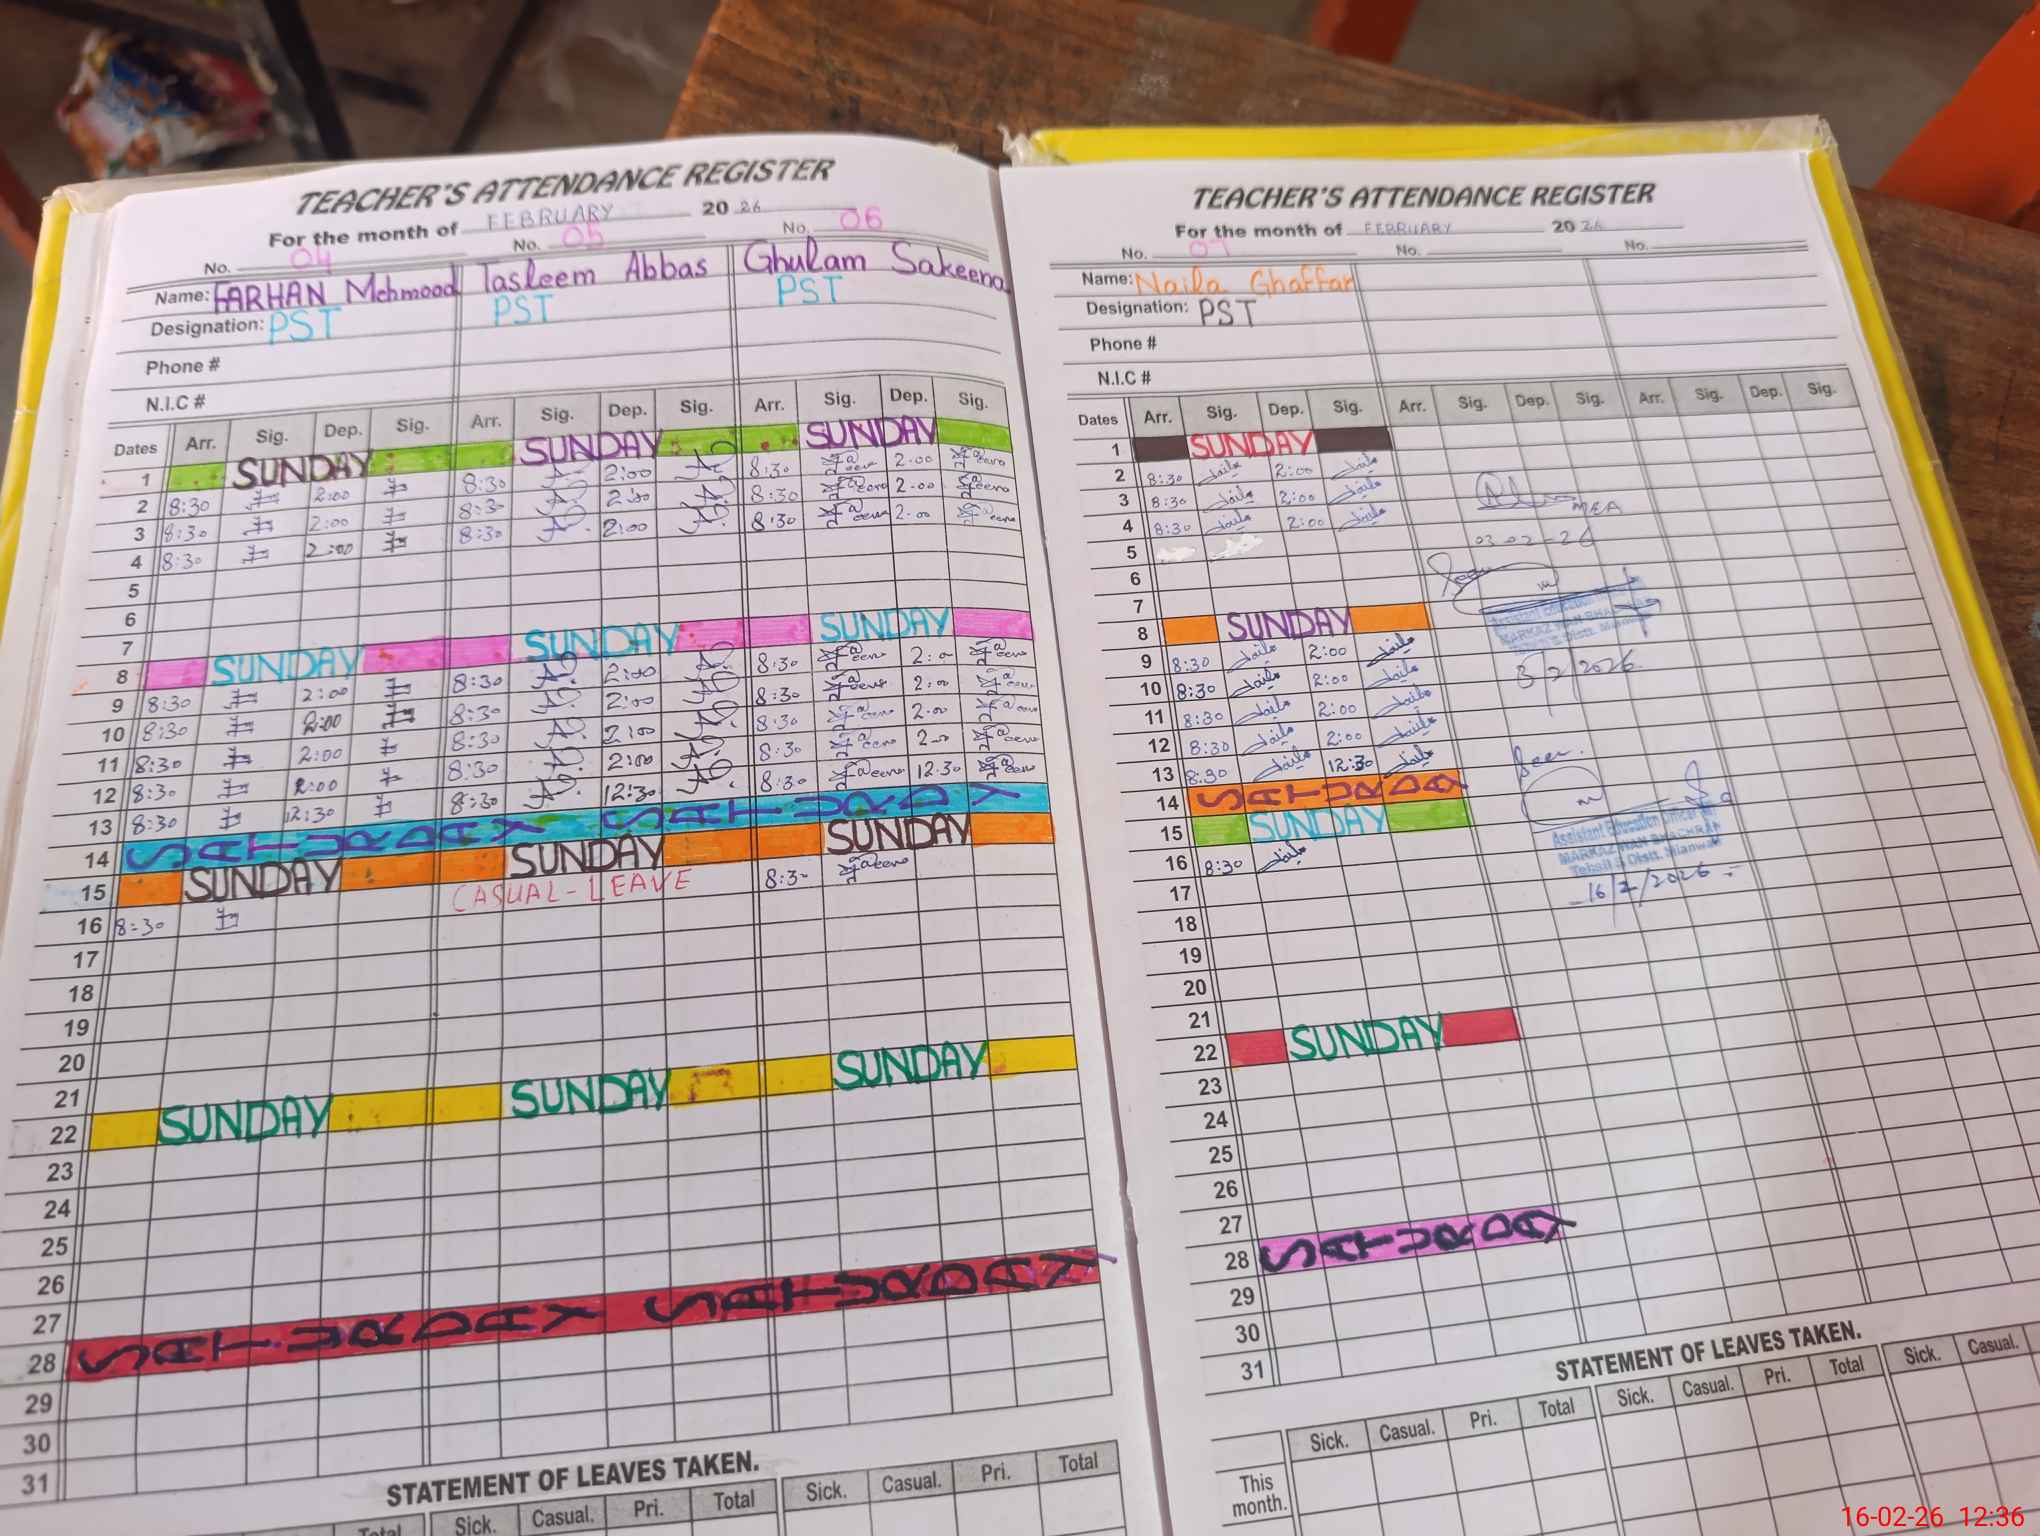 TEACHER'S ATTENDANCE REGISTER
For the month of FEBRUARY 2026
No. 04 No. 05 No. 06
Name: FARHAN Mehmood Tasleem Abbas Ghulam Sakeena
Designation: PST PST PST
Phone #
N.I.C #
Dates Arr. Sig. Dep. Sig. Arr. Sig. Dep. Sig. Arr. Sig. Dep. Sig.
1 SUNDAY SUNDAY SUNDAY
2 8:30 2:00 8:30 2:00 8:30 2:00
3 8:30 2:00 8:30 2:00 8:30 2:00
4 8:30 2:00 8:30 2:00 8:30 2:00
5
6
7
8 SUNDAY SUNDAY SUNDAY
9 8:30 2:00 8:30 2:00 8:30 2:00
10 8:30 2:00 8:30 2:00 8:30 2:00
11 8:30 2:00 8:30 2:00 8:30 2:00
12 8:30 2:00 8:30 2:00 8:30 2:00
13 8:30 12:30 8:30 12:30 8:30 12:30
14 SATURDAY SATURDAY
15 SUNDAY SUNDAY SUNDAY
16 8:30 CASUAL-LEAVE 8:30
17
18
19
20
21
22 SUNDAY SUNDAY SUNDAY
23
24
25
26
27
28 SATURDAY SATURDAY
29
30
31
STATEMENT OF LEAVES TAKEN.
Total Sick. Casual. Pri. Total Sick. Casual. Pri. Total
TEACHER'S ATTENDANCE REGISTER
For the month of FEBRUARY 2026
No. 07 No. No.
Name: Naila Ghaffar
Designation: PST
Phone #
N.I.C #
Dates Arr. Sig. Dep. Sig. Arr. Sig. Dep. Sig. Arr. Sig. Dep. Sig.
1 SUNDAY
2 8:30 نائیلہ 2:00 نائیلہ
3 8:30 نائیلہ 2:00 نائیلہ
4 8:30 نائیلہ 2:00 نائیلہ
MEA
03-02-26
5
6
7
8 SUNDAY
Seen
Assistant Education Officer
MARKAZ WAN BHACHRAN
Tehsil & Distt. Mianwali
3/2/2026
9 8:30 نائیلہ 2:00 نائیلہ
10 8:30 نائیلہ 2:00 نائیلہ
11 8:30 نائیلہ 2:00 نائیلہ
12 8:30 نائیلہ 2:00 نائیلہ
13 8:30 نائیلہ 12:30 نائیلہ
14 SATURDAY
15 SUNDAY
16 8:30 نائیلہ
Seen.
Assistant Education Officer
MARKAZ WAN BHACHRAN
Tehsil & Distt. Mianwali
16/2/2026
17
18
19
20
21
22 SUNDAY
23
24
25
26
27
28 SATURDAY
29
30
31
STATEMENT OF LEAVES TAKEN.
Sick. Casual. Pri. Total Sick. Casual. Pri. Total Sick. Casual.
This month.
16-02-26 12:36